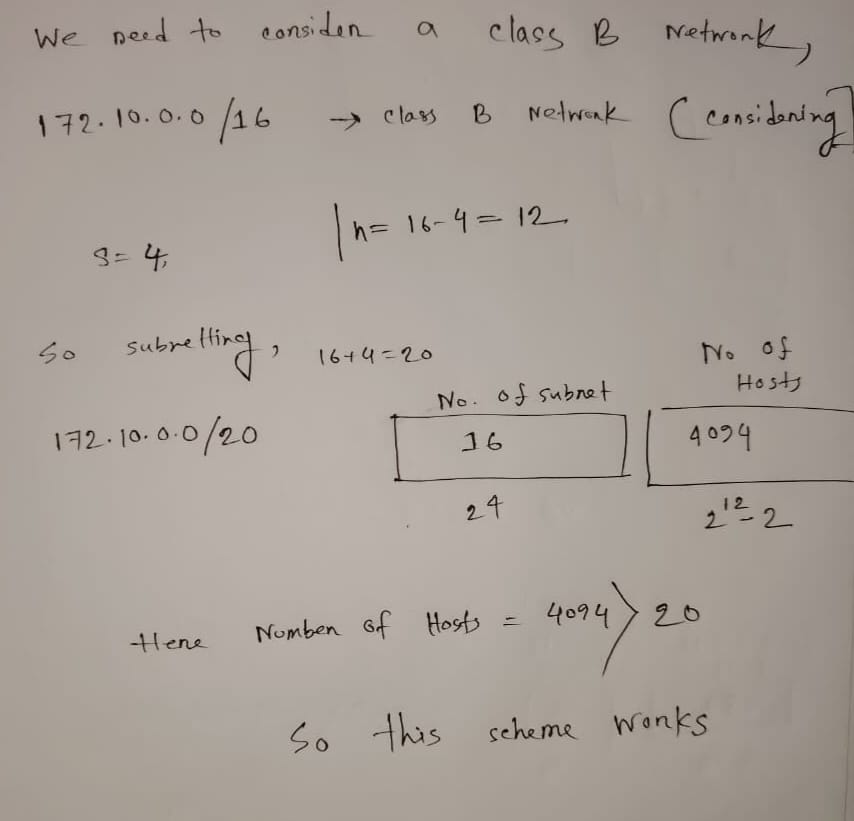 We need to consider a class B Network,
172.10.0.0/16 → class B Network (considering)
S = 4, | h = 16-4 = 12
So subnetting, 16+4=20
No. of subnet No of Hosts
172.10.0.0/20 16 4094
24 2¹²-2
Here Number of Hosts = 4094 > 20
So this scheme works